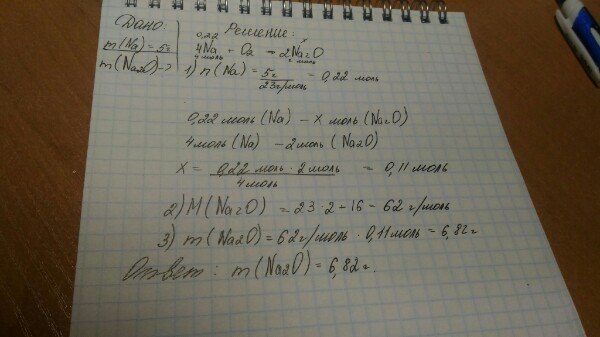 Дано:
m(Na)=5г
m(Na2O)-?
Решение:
0,22 x
4Na + O2 = 2Na2O
4моль 2моль
1) n(Na) = 5г / 23г/моль = 0,22 моль
0,22 моль (Na) - x моль (Na2O)
4 моль (Na) - 2 моль (Na2O)
x = 0,22 моль · 2 моль / 4 моль = 0,11 моль
2) M(Na2O) = 23·2+16 = 62 г/моль
3) m(Na2O) = 62 г/моль · 0,11 моль = 6,82г
Ответ: m(Na2O) = 6,82г.